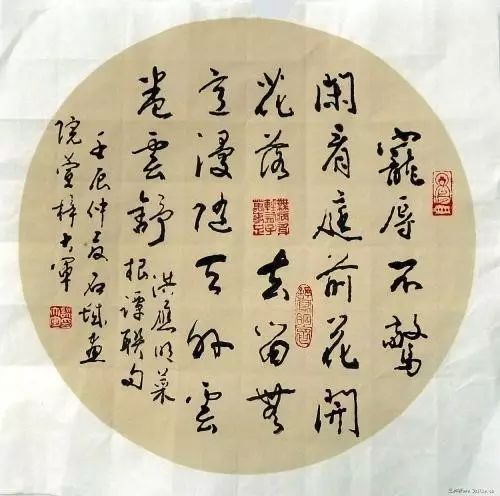 寵辱不驚
閑看庭前花開
花落去留無
意漫随天外雲
卷雲舒
洪應明菜
根譚联句
壬辰仲夏石城画
院